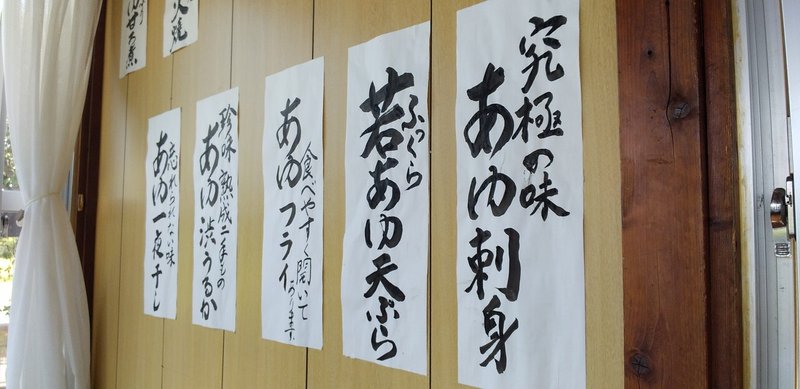 究極の味
あゆ刺身
ふっくら
若あゆ天ぷら
食べやすく開いて
おります
あゆフライ
珍味 熟成二年もの
あゆ渋うるか
忘れられない味
あゆ一夜干し
甘ろ煮